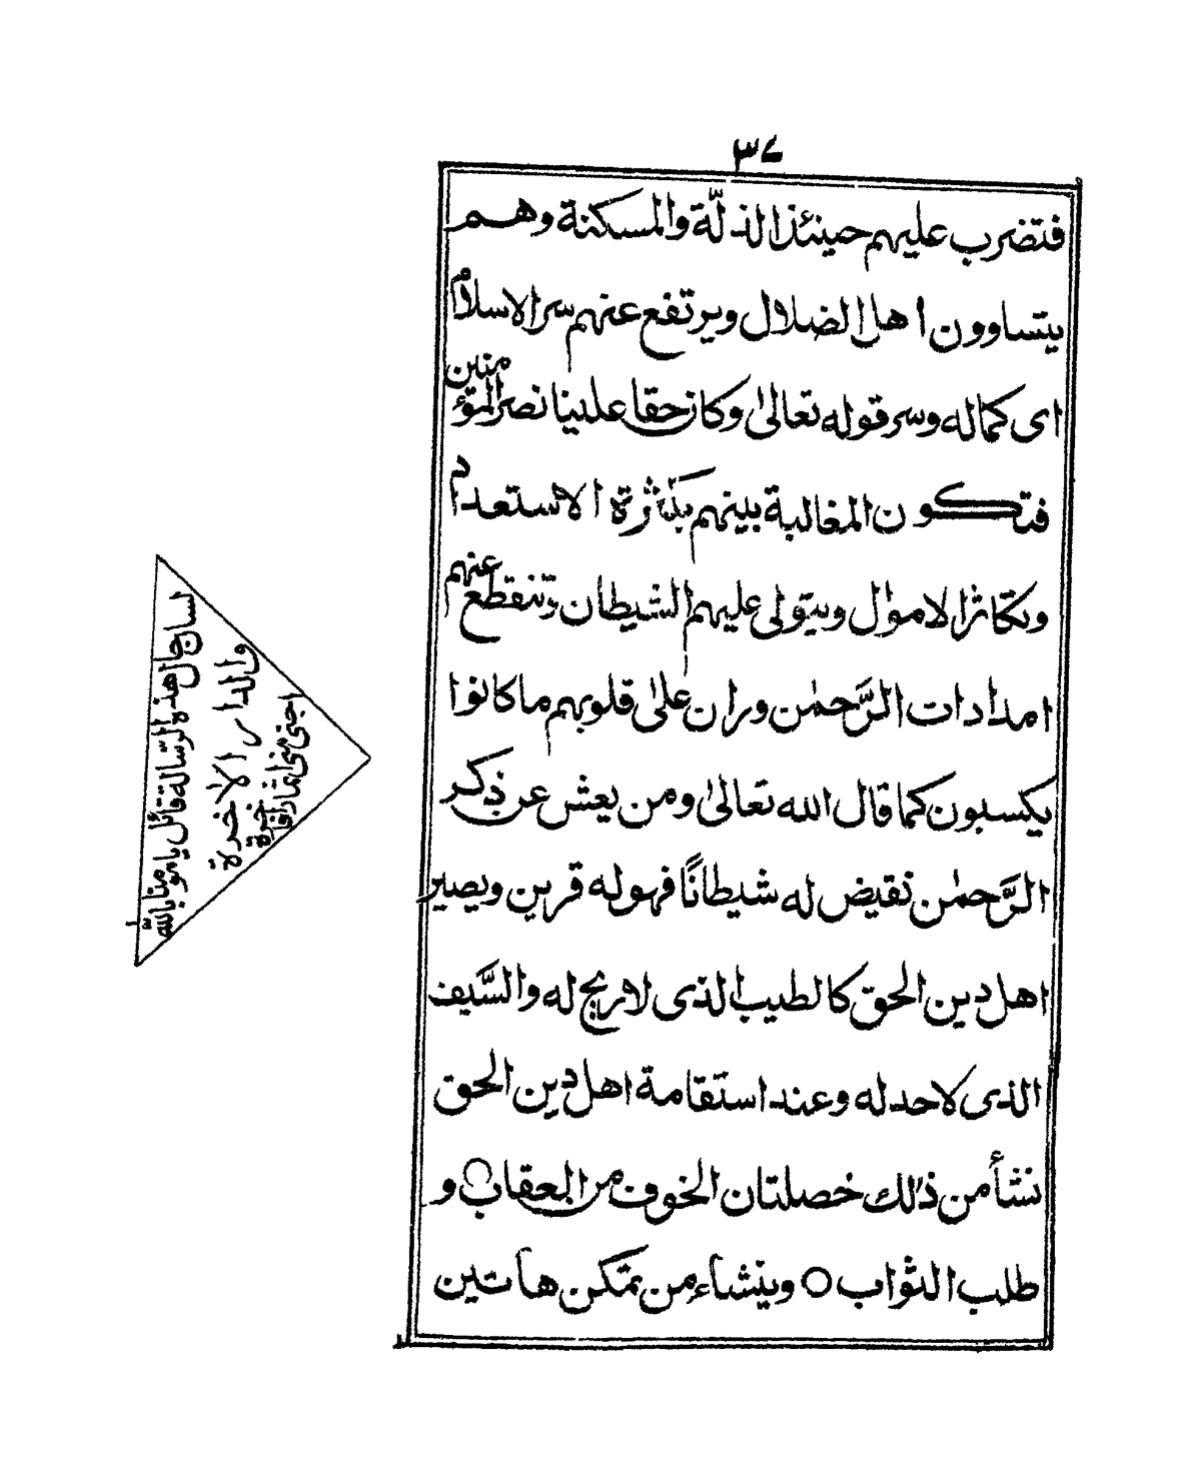 ٣٧
فتضرب عليهم حينئذ الذلّة والمسكنة وهم
يتساوون اهل الضلال ويرتفع عنهم سر الاسلام
اى كماله وسر قوله تعالىٰ وكان حقا علينا نصر المؤمنين
فتكون المغالبة بينهم بكثرة الاستعداد
وبتكاثر الاموال ويتولى عليهم الشيطان وتنقطع عنهم
امدادات الرَّحمٰن وران علىٰ قلوبهم ما كانوا
يكسبون كما قال الله تعالىٰ ومن يعش عن ذكر
الرَّحمٰن نقيض له شيطانًا فهو له قرين ويصير
اهل دين الحق كالطيب الذى لا ريح له والسَّيف
الذى لا حد له وعند استقامة اهل دين الحق
نشأ من ذٰلك خصلتان الخوف من العقاب ○ و
طلب الثواب ○ وينشاء من تمكن هاتين
لسان حال هذه الرّسالة قائل يا مومنا بالله
والدار الاٰخرة
اجتنى منى اثمارا فاخرة